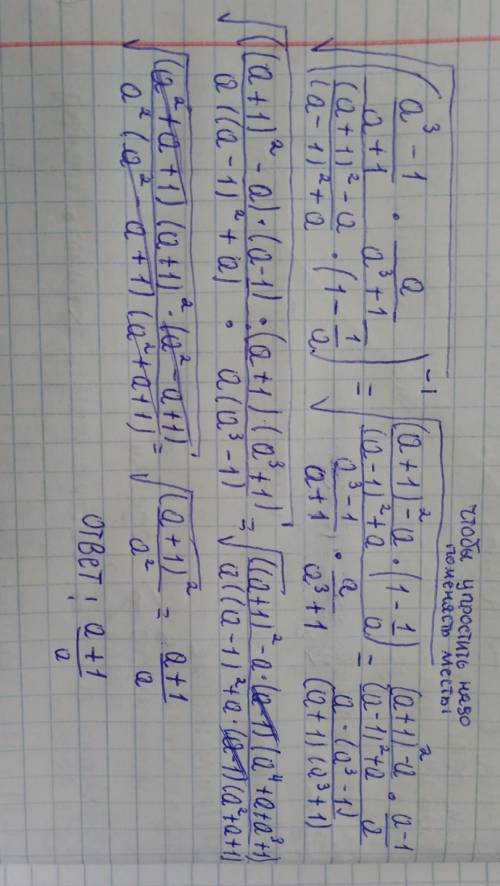 чтобы упростить надо
поменясть месты
√(((a³ - 1)/(a + 1) · a/(a³ + 1)) / (((a + 1)² - a)/((a - 1)² + a) · (1 - 1/a)))⁻¹ = √((((a + 1)² - a)/((a - 1)² + a) · (1 - 1/a)) / ((a³ - 1)/(a + 1) · a/(a³ + 1))) = (((a + 1)² - a)/((a - 1)² + a) · (a - 1)/a) / ((a · (a³ - 1))/((a + 1)(a³ + 1)))
√((((a + 1)² - a) · (a - 1) · (a + 1) · (a³ + 1))/(a((a - 1)² + a) · a(a³ - 1))) = √((((a + 1)² - a · (a - 1)(a⁴ + a + a³ + 1))/(a((a - 1)² + a · (a - 1)(a² + a + 1)))
√(((a² + a + 1)(a + 1)² · (a² - a + 1))/(a²(a² - a + 1)(a² + a + 1))) = √((a + 1)²/a²) = (a + 1)/a
ответ: (a + 1)/a